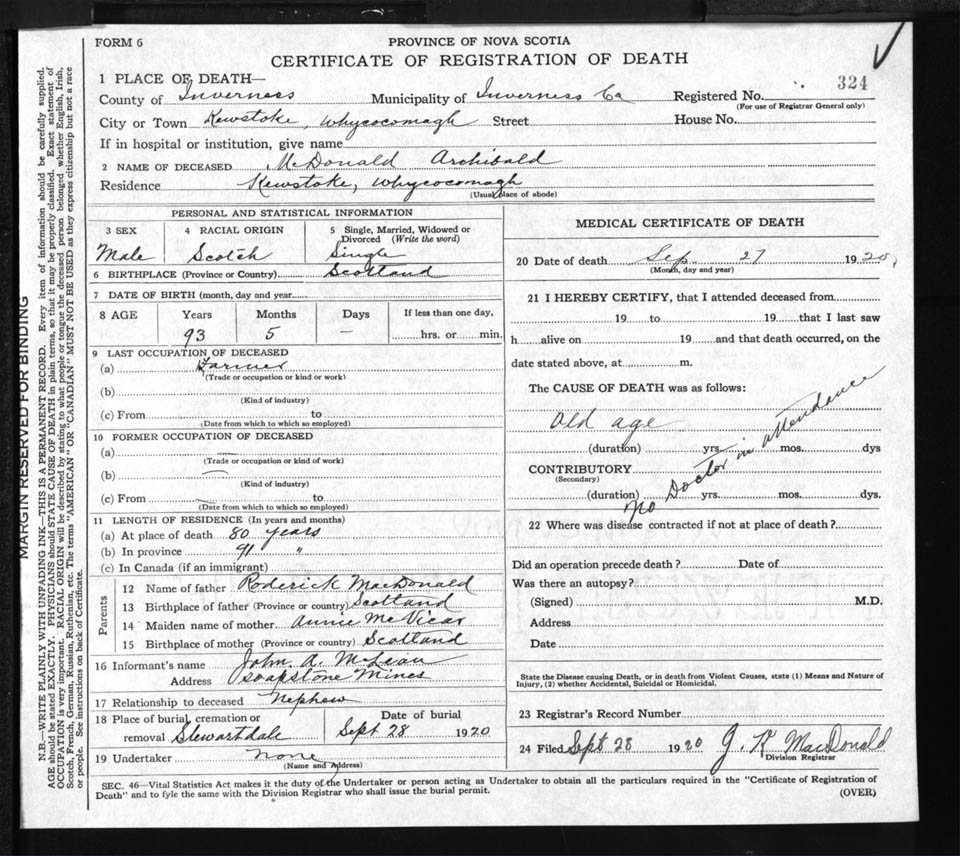 FORM 6
PROVINCE OF NOVA SCOTIA
CERTIFICATE OF REGISTRATION OF DEATH
324
1 PLACE OF DEATH—
County of Inverness Municipality of Inverness Co Registered No.
(For use of Registrar General only)
City or Town Kewstoke, Whycocomagh Street House No.
If in hospital or institution, give name
2 NAME OF DECEASED McDonald Archibald
Residence Kewstoke, Whycocomagh
(Usual place of abode)
PERSONAL AND STATISTICAL INFORMATION
3 SEX 4 RACIAL ORIGIN 5 Single, Married, Widowed or Divorced (Write the word)
Male Scotch Single
6 BIRTHPLACE (Province or Country) Scotland
7 DATE OF BIRTH (month, day and year
8 AGE Years Months Days If less than one day,
93 5 — hrs. or min.
9 LAST OCCUPATION OF DECEASED
(a) Farmer
(Trade or occupation or kind or work)
(b)
(Kind of industry)
(c) From to
(Date from which to which so employed)
10 FORMER OCCUPATION OF DECEASED
(a)
(Trade or occupation or kind of work)
(b)
(Kind of industry)
(c) From to
(Date from which to which so employed)
11 LENGTH OF RESIDENCE (In years and months)
(a) At place of death 80 years
(b) In province 91 "
(c) In Canada (if an immigrant)
Parents
12 Name of father Roderick MacDonald
13 Birthplace of father (Province or country) Scotland
14 Maiden name of mother Annie McVicar
15 Birthplace of mother (Province or country) Scotland
16 Informant's name John A. McLean
Address Soapstone Mines
17 Relationship to deceased Nephew
18 Place of burial, cremation or Date of burial
removal Stewartdale Sept 28 1920
19 Undertaker None
(Name and Address)
MEDICAL CERTIFICATE OF DEATH
20 Date of death Sep 27 1920,
(Month, day and year)
21 I HEREBY CERTIFY, that I attended deceased from
19 to 19 that I last saw
h alive on 19 and that death occurred, on the
date stated above, at m.
The CAUSE OF DEATH was as follows:
Old age
(duration) yrs. mos. dys
CONTRIBUTORY
(Secondary)
(duration) yrs. mos. dys.
No Doctor in attendence
22 Where was disease contracted if not at place of death?
Did an operation precede death? Date of
Was there an autopsy?
(Signed) M.D.
Address
Date
State the Disease causing Death, or in death from Violent Causes, state (1) Means and Nature of
Injury, (2) whether Accidental, Suicidal or Homicidal.
23 Registrar's Record Number
24 Filed Sept 28 1920 J. R MacDonald
Division Registrar
SEC. 46—Vital Statistics Act makes it the duty of the Undertaker or person acting as Undertaker to obtain all the particulars required in the "Certificate of Registration of
Death" and to fyle the same with the Division Registrar who shall issue the burial permit.
(OVER)
MARGIN RESERVED FOR BINDING
N.B.—WRITE PLAINLY WITH UNFADING INK—THIS IS A PERMANENT RECORD. Every item of information should be carefully supplied.
AGE should be stated EXACTLY. PHYSICIANS should STATE CAUSE OF DEATH in plain terms, so that it may be properly classified. Exact statement of
OCCUPATION is very important. RACIAL ORIGIN will be described by stating to what people or tongue the deceased person belonged, whether English, Irish,
Scotch, French, German, Russian, Ruthenian, etc. The terms "AMERICAN" OR "CANADIAN" MUST NOT BE USED as they express citizenship but not a race
or people. See instructions on back of Certificate.